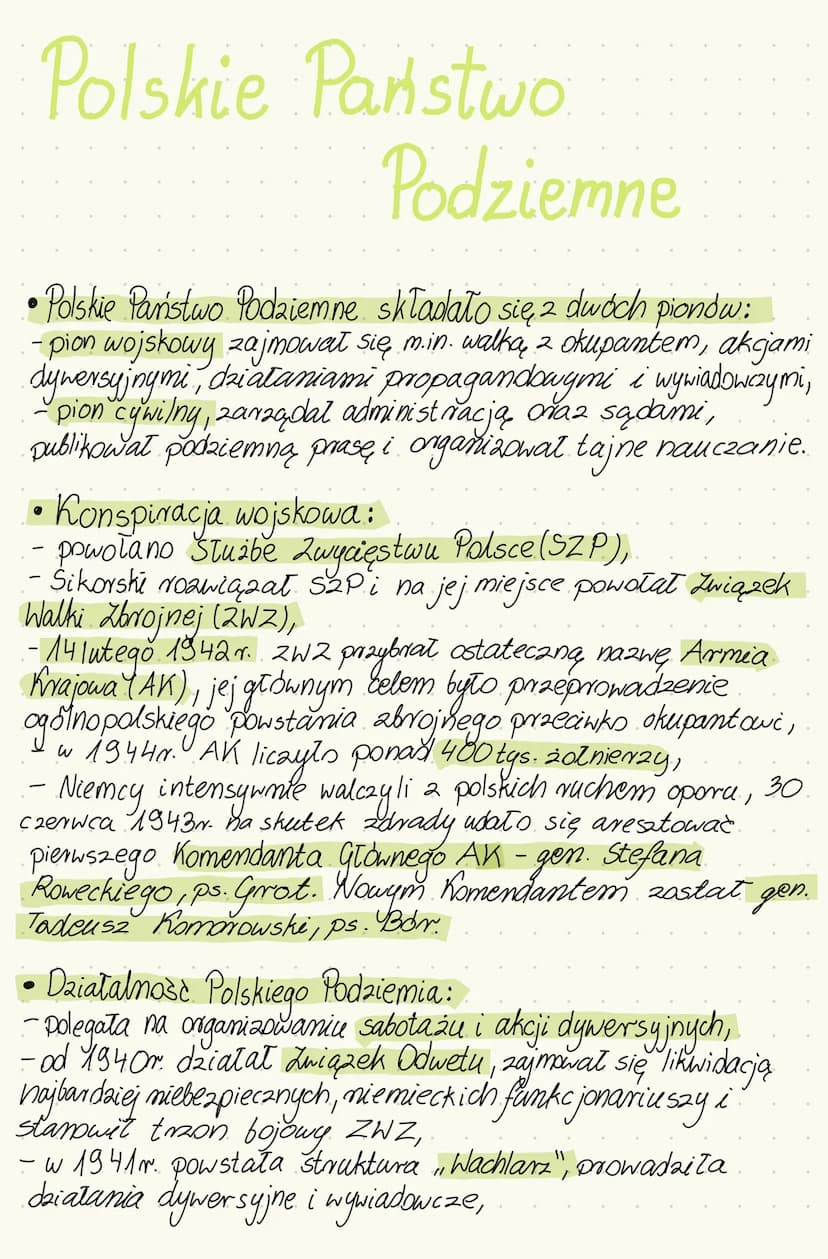 Polskie Państwo
Podziemne
• Polskie Państwo Podziemne składało się z dwóch pionów:
- pion wojskowy zajmował się m.in. walką z okupantem, akcjami
dywersyjnymi, działaniami propagandowymi i wywiadowczymi,
- pion cywilny, zarządał administracją oraz sądami,
publikował podziemną prasę i organizował tajne nauczanie.
• Konspiracja wojskowa:
- powołano Służbę Zwycięstwu Polsce (SZP),
- Sikorski rozwiązał SZP i na jej miejsce powołał Związek
Walki Zbrojnej (ZWZ),
- 14 lutego 1942r. ZWZ przybrał ostateczną nazwę Armia
Krajowa (AK), jej głównym celem było przeprowadzenie
ogólnopolskiego powstania zbrojnego przeciwko okupantowi,
- w 1944r. AK liczyło ponad 400 tys. żołnierzy,
- Niemcy intensywnie walczyli z polskich ruchem oporu, 30
czerwca 1943r. na skutek zdrady udało się aresztować
pierwszego Komendanta Głównego AK - gen. Stefana
Roweckiego, ps. Grot. Nowym Komendantem został gen.
Tadeusz Komorowski, ps. Bór.
• Działalność Polskiego Podziemia:
- polegała na organizowaniu sabotażu i akcji dywersyjnych,
- od 1940r. działał Związek Odwetu, zajmował się likwidacją
najbardziej niebezpiecznych, niemieckich funkcjonariuszy i
stanowił trzon bojowy ZWZ,
- w 1941r. powstała struktura „Wachlarz", prowadziła
działania dywersyjne i wywiadowcze,